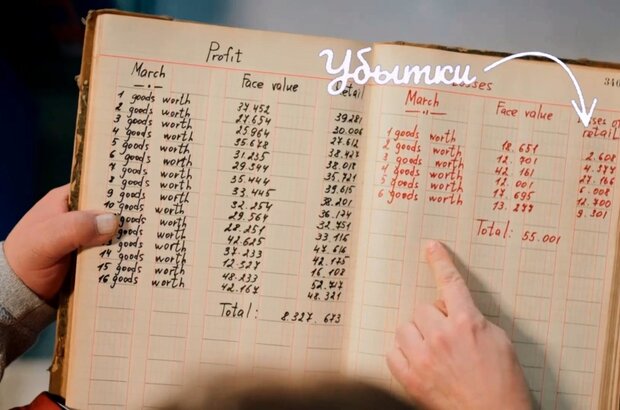 Profit
March Face value etail
1 goods worth 37.452 39.281
2 goods worth 27.654 30.006
3 goods worth 25.964 27.612
4 goods worth 35.678 38.427
5 goods worth 31.235 38.018
6 goods worth 29.344 35.721
7 goods worth 35.444 39.615
8 goods worth 33.445 38.201
9 goods worth 32.254 36.174
10 goods worth 29.564 32.751
goods worth 28.251 33.116
goods worth 42.625 47.616
goods worth 37.233 42.125
14 goods worth 12.327 16.108
15 goods worth 48.233 52.717
16 goods worth 42.167 48.321
Total: 8.327.673
Убытки
sses
March Face value ses of retail
1 goods worth 18.651 2.608
2 goods worth 12.701 4.377
3 goods worth 42.161
4 goods worth 12.001 6.008
5 goods worth 17.695 12.700
6 goods worth 13.277 9.301
Total: 55.001